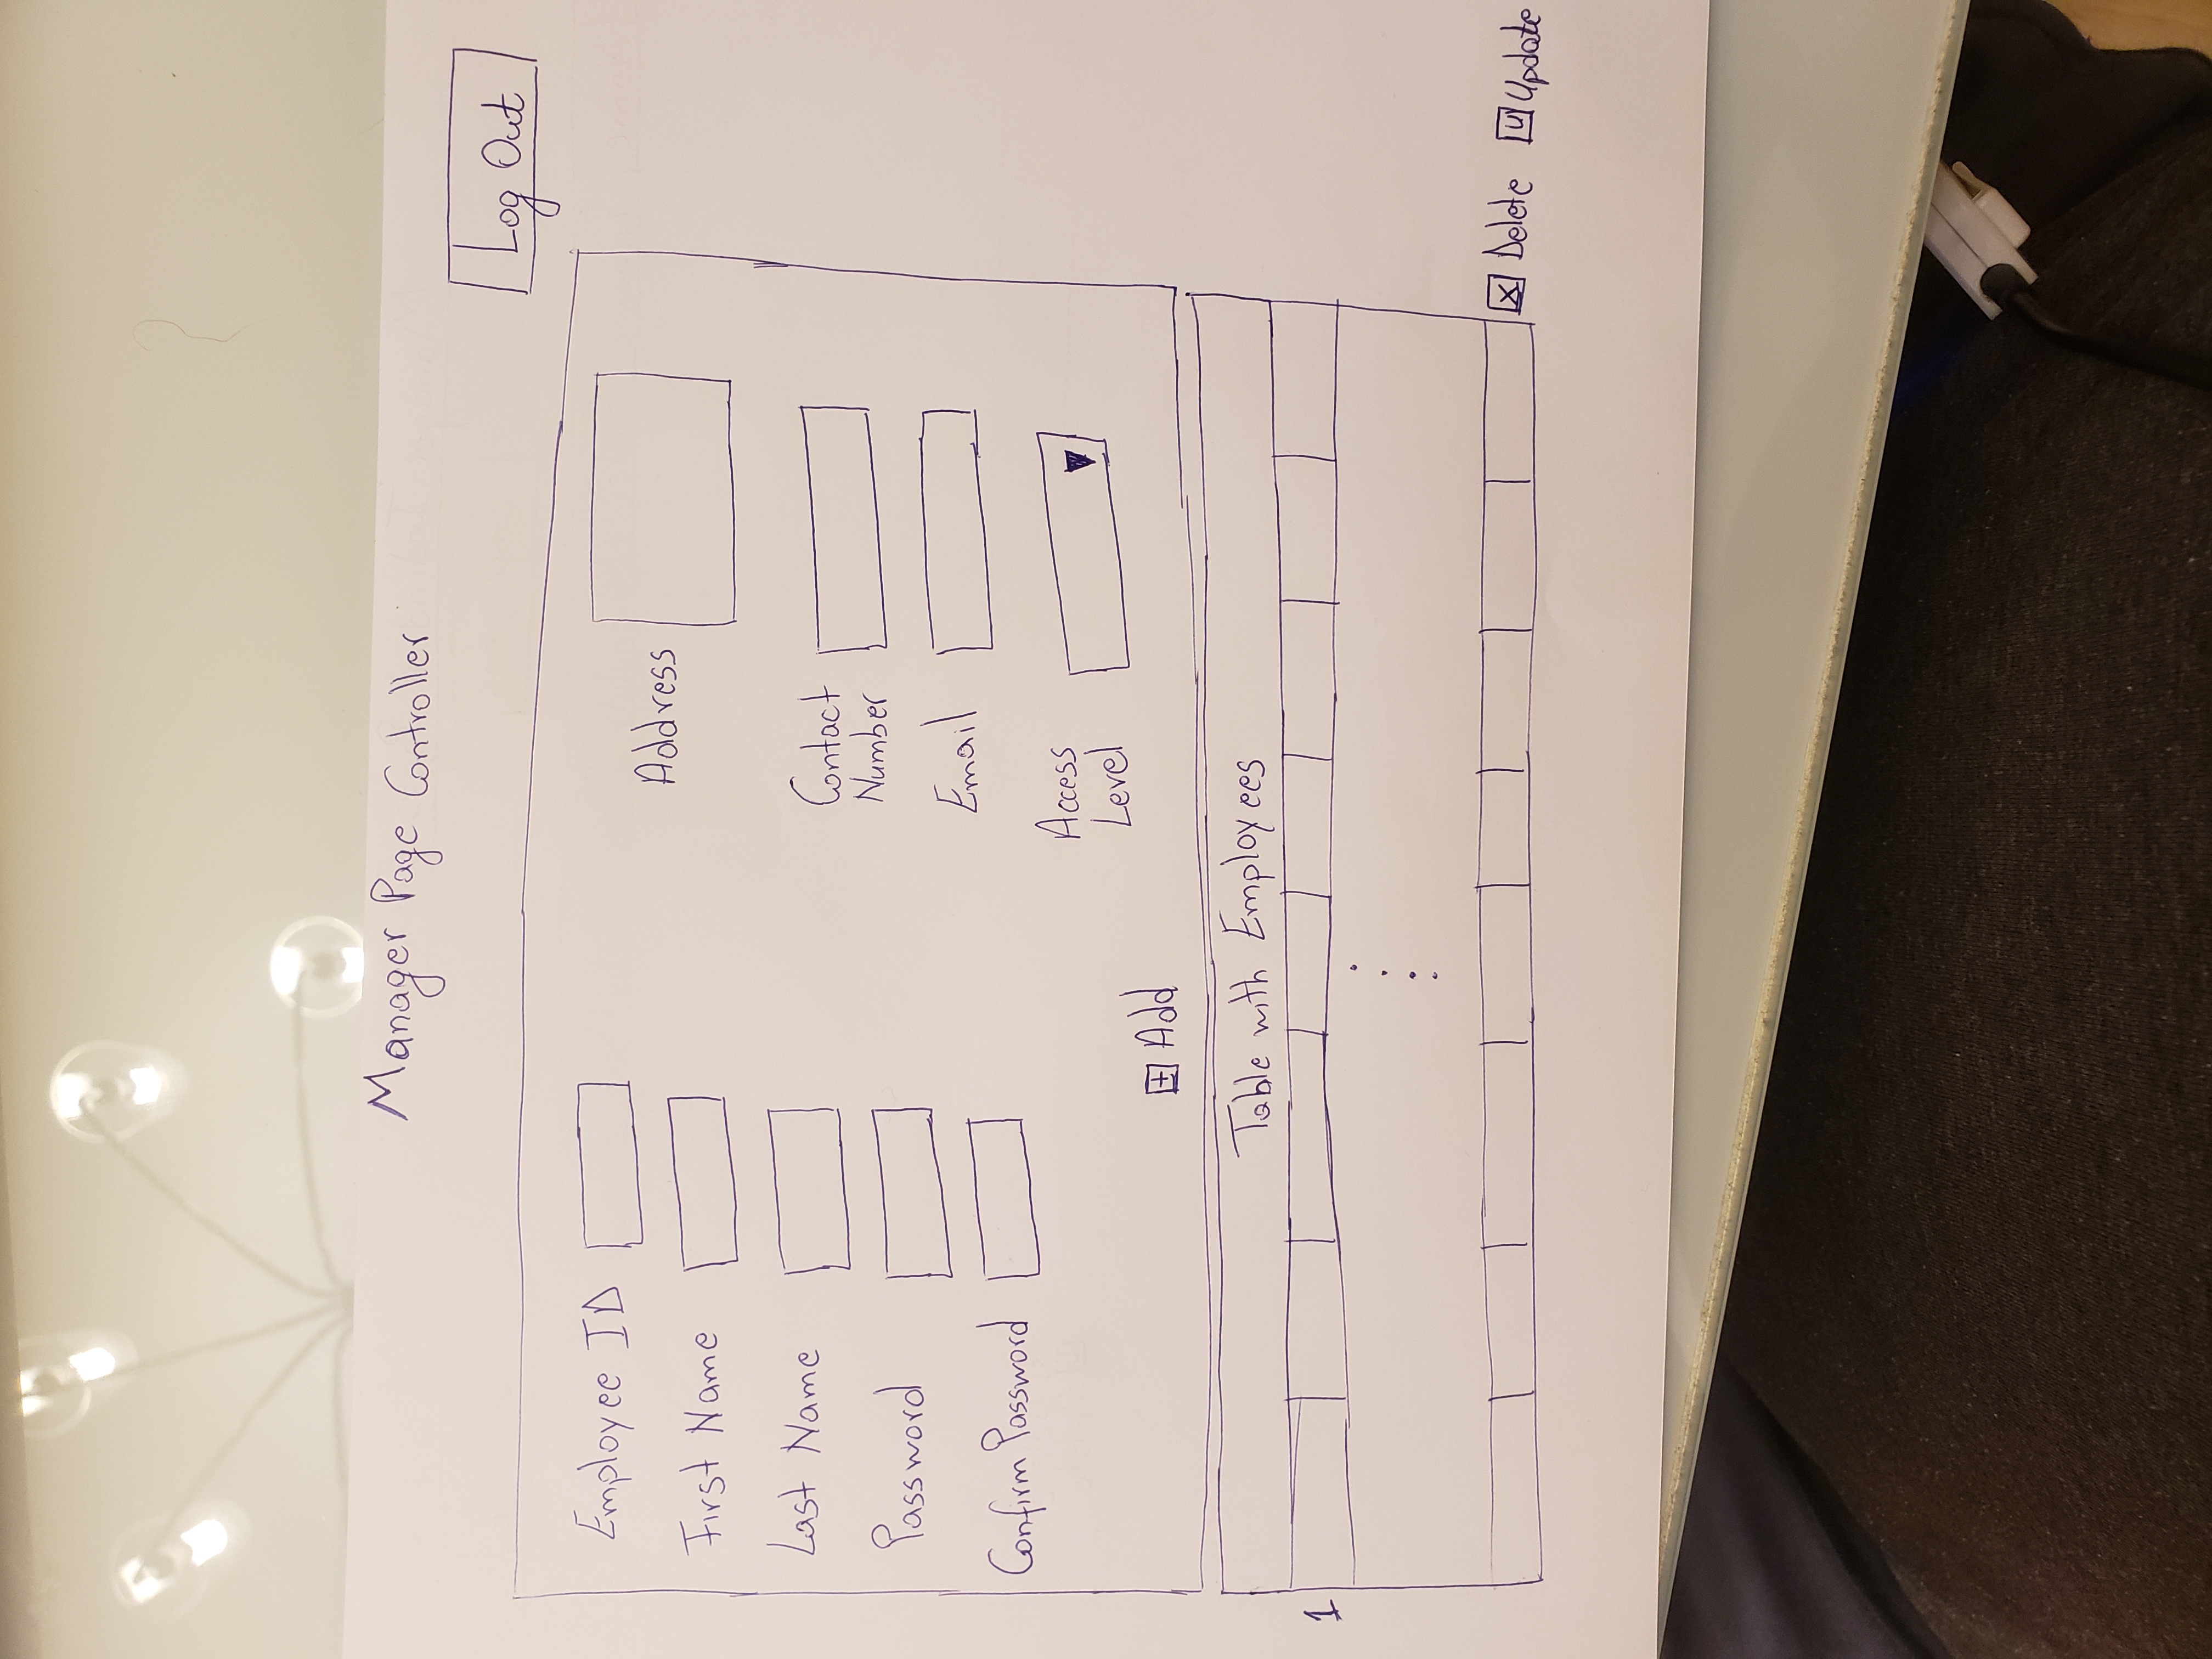 Manager Page Controller
Log Out
Employee ID
First Name
Last Name
Password
Confirm Password
Address
Contact
Number
Email
Access
Level
+ Add
Table with Employees
1
X Delete
U Update